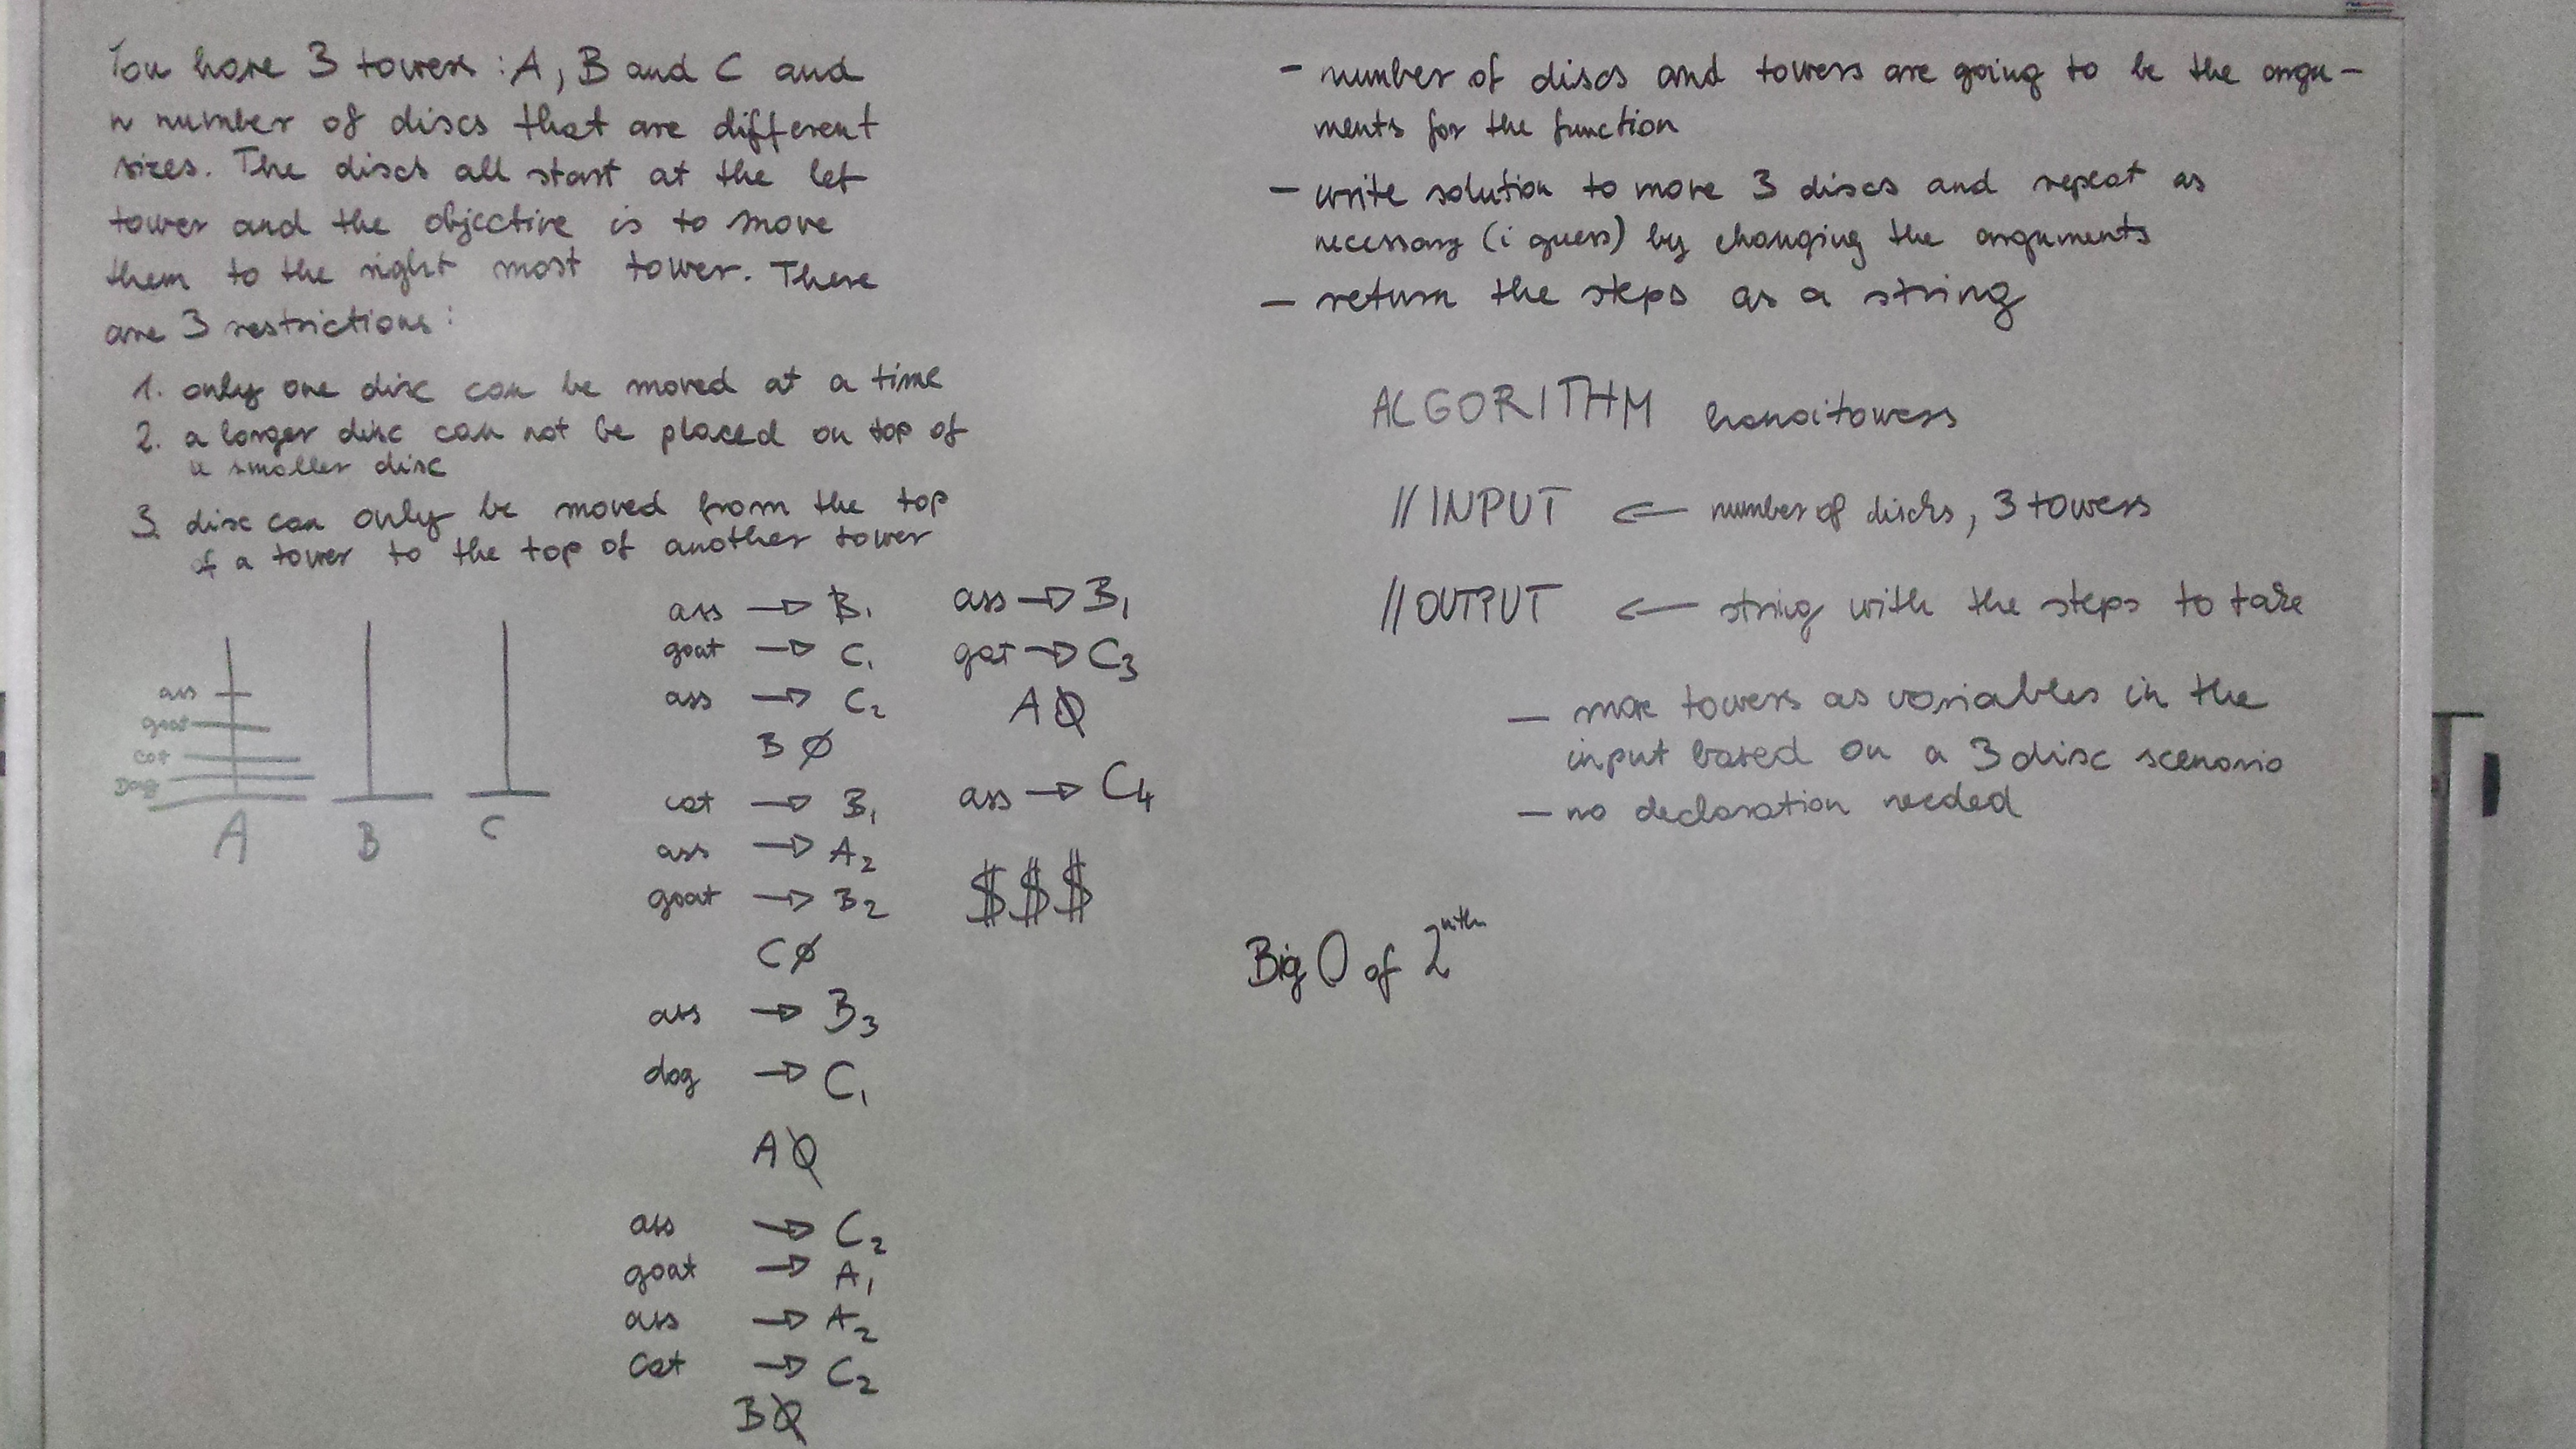 You have 3 towers : A, B and C and
n number of discs that are different
sizes. The discs all start at the let
tower and the objective is to move
them to the right most tower. There
are 3 restrictions :
1. only one disc can be moved at a time
2. a larger disc can not be placed on top of
a smaller disc
3. disc can only be moved from the top
of a tower to the top of another tower
ass
goat
cat
Dog
A B C
ass → B1
goat → C1
ass → C2
B Ø
cat → B1
ass → A2
goat → B2
C Ø
ass → B3
dog → C1
A Ø
ass → C2
goat → A1
ass → A2
Cat → C2
B Ø
ass → B1
goat → C3
A Ø
ass → C4
$$$
- number of discs and towers are going to be the argu-
ments for the function
- write solution to move 3 discs and repeat as
necessary (i guess) by changing the arguments
- return the steps as a string
ALGORITHM hanoitowers
// INPUT ← number of discs, 3 towers
// OUTPUT ← string with the steps to take
- more towers as variables in the
input based on a 3 disc scenario
- no declaration needed
Big O of 2^nth